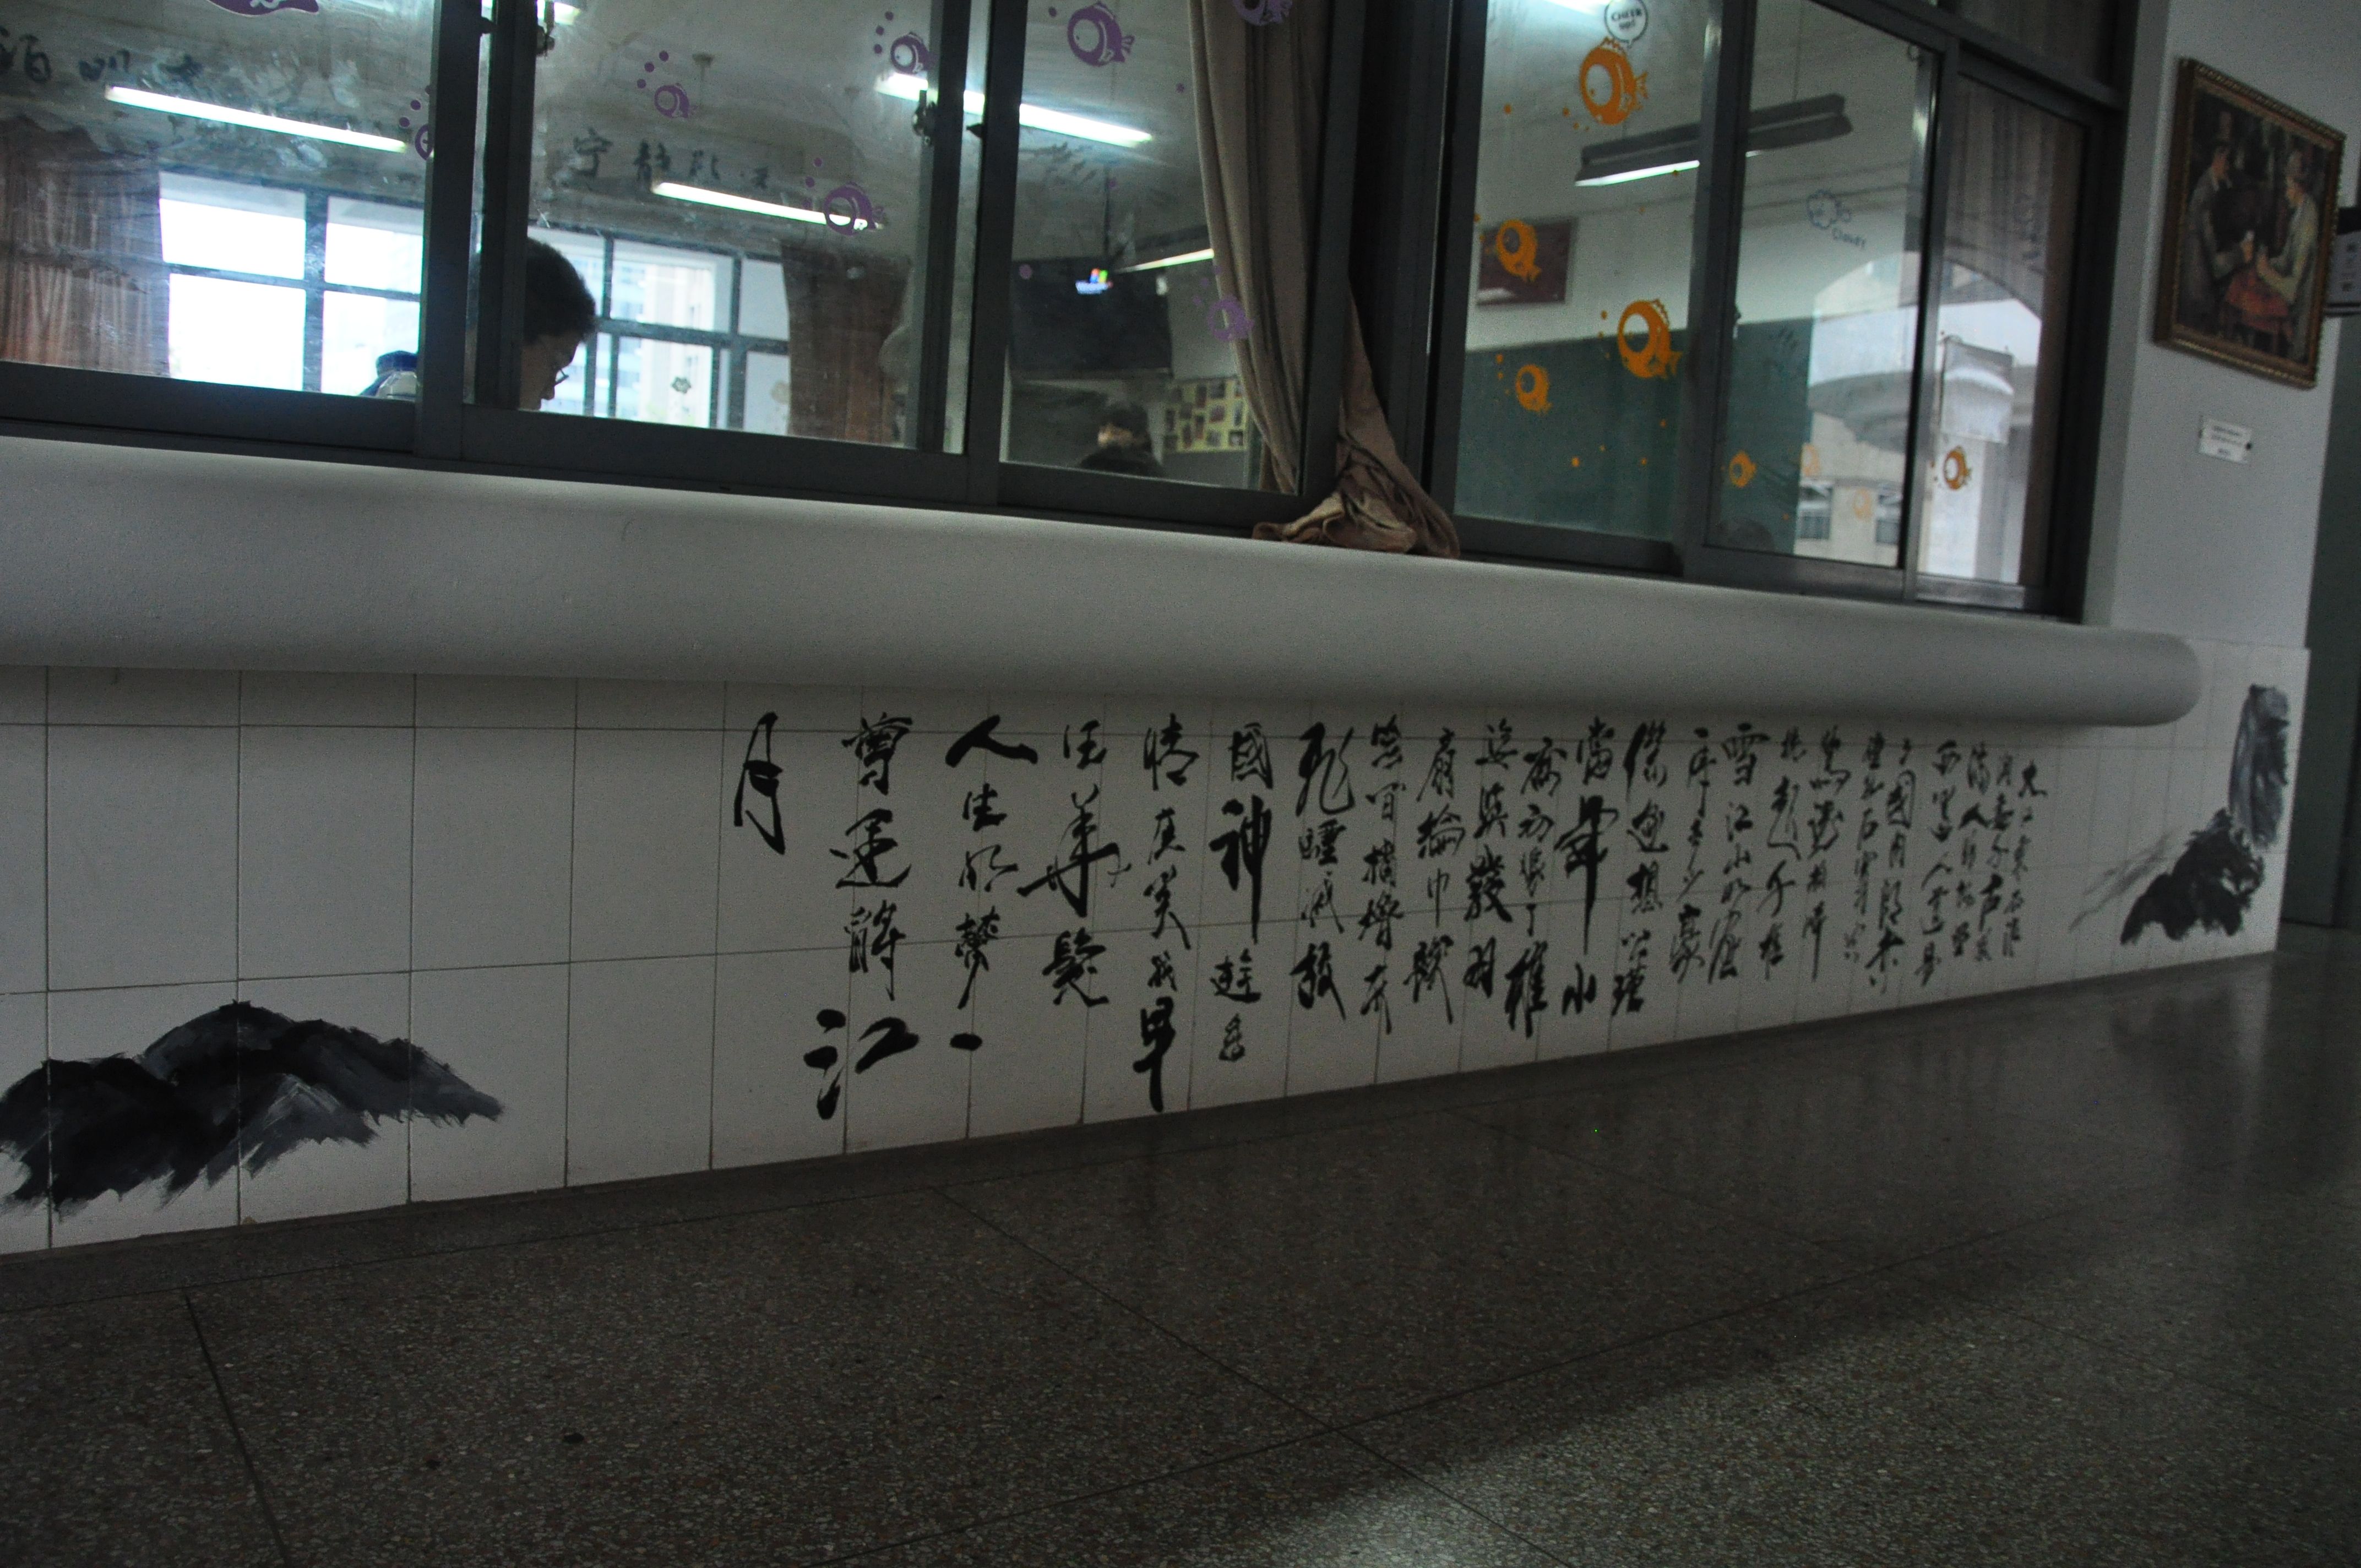 CHEER
up!
Cloudy
宁静致远
大江東去浪
西邊人道是
三國周郎赤
壁亂石穿空
驚濤拍岸
捲起千堆
雪江山如畫
一時多少豪
傑遙想公瑾
當年小
喬初嫁了雄
姿英發羽
扇綸巾談
笑間檣櫓灰
飛煙滅故
國神遊多
情應笑我早
生華髮
人生如夢一
尊還酹江
月